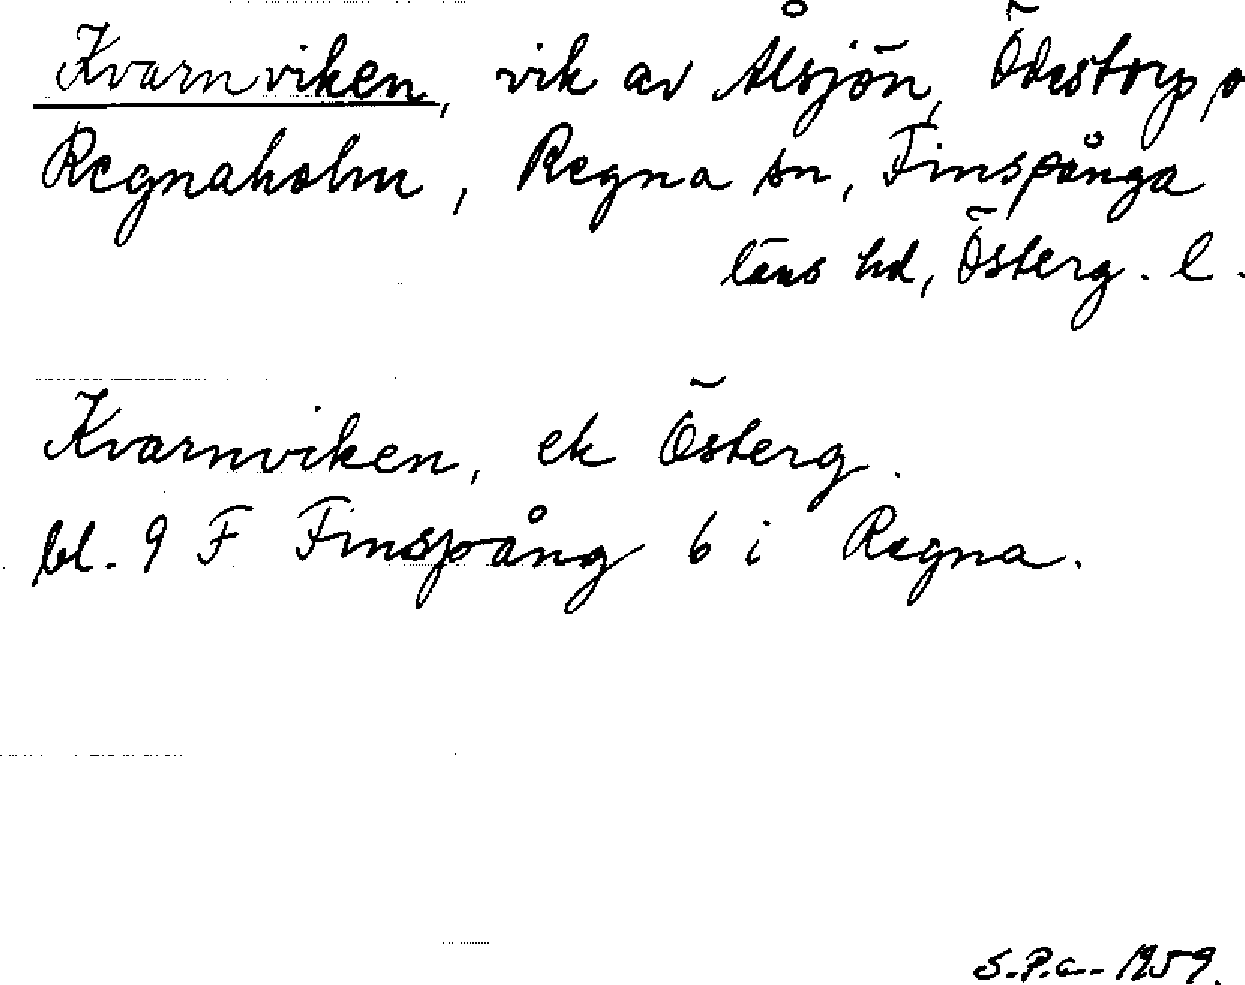 Kvarnviken, vik av Ålsjön, Ödestorp, o
Regnaholm, Regna sn, Finspånga
läns hd, Österg. l.
Kvarnviken, ek Österg.
bl. 9 F Finspång 6 i Regna.
S.P.a. 1959.